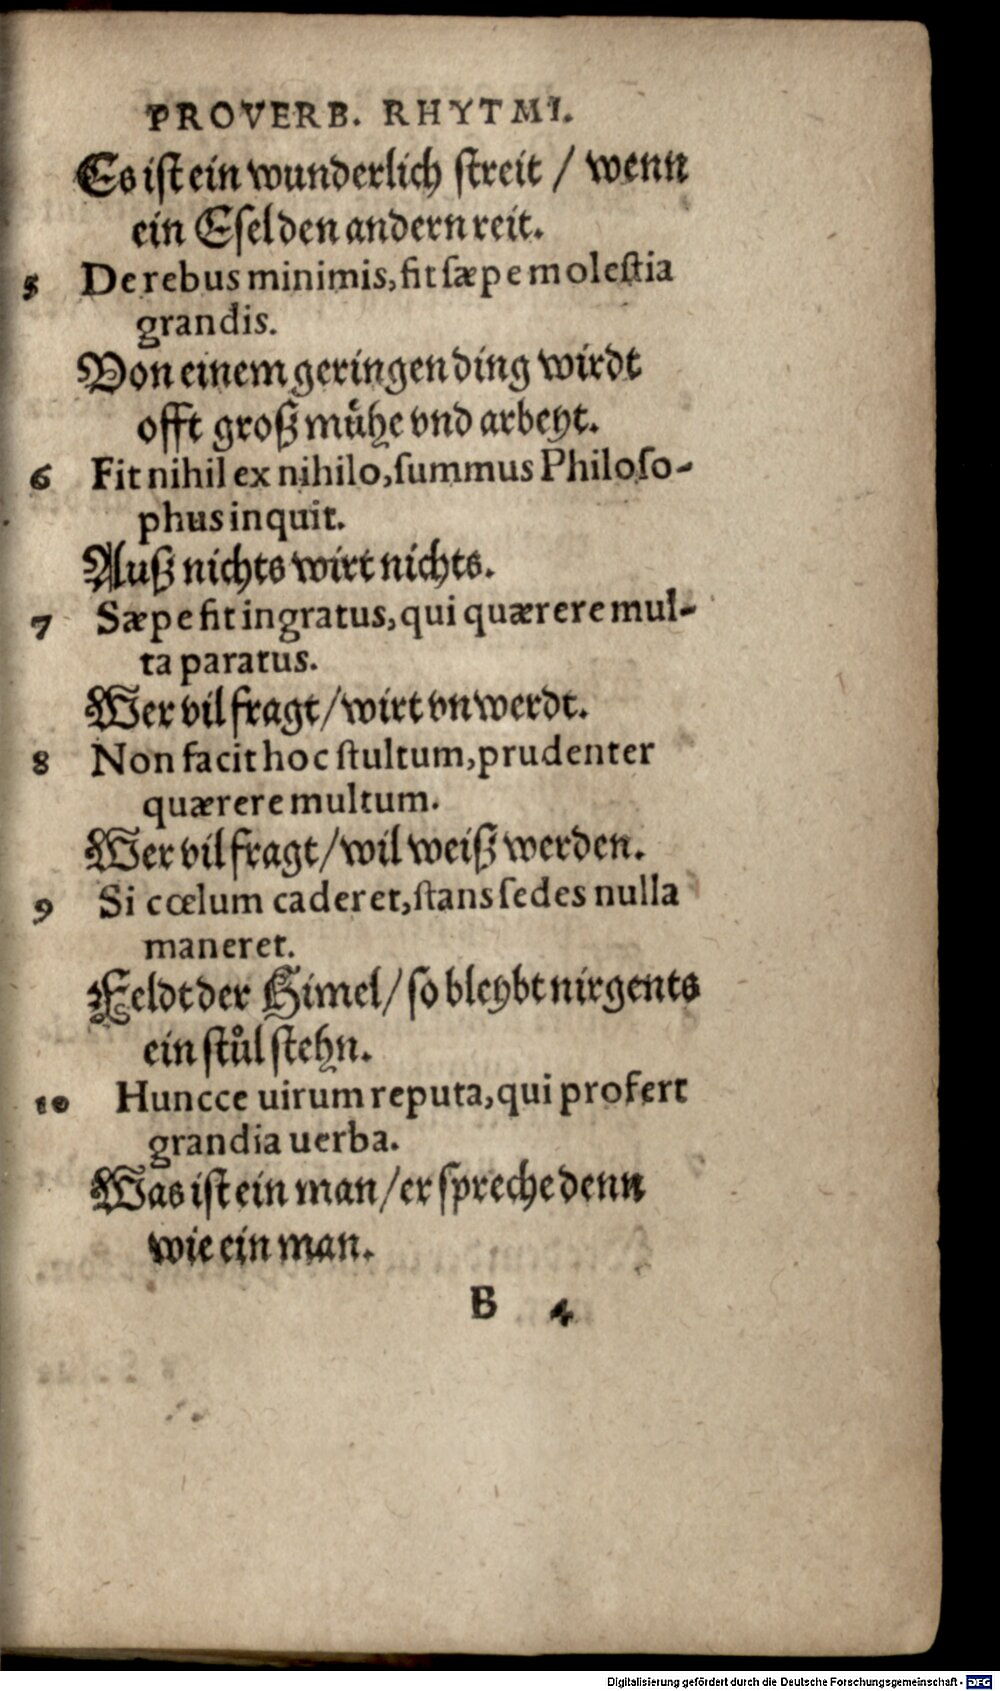 PROVERB. RHYTMI.
Es ist ein wunderlich streit / wenn
ein Esel den andern reit.
5 De rebus minimis, fit sæpe molestia
grandis.
Von einem geringen ding wirdt
offt groß muͤhe vnd arbeyt.
6 Fit nihil ex nihilo, summus Philoso-
phus inquit.
Auß nichts wirt nichts.
7 Sæpe fit ingratus, qui quærere mul-
ta paratus.
Wer vil fragt/wirt vnwerdt.
8 Non facit hoc stultum, prudenter
quærere multum.
Wer vil fragt/wil weiß werden.
9 Si cœlum caderet, stans sedes nulla
maneret.
Feldt der Himel/so bleybt nirgents
ein stuͦl stehn.
10 Huncce uirum reputa, qui profert
grandia uerba.
Was ist ein man/er spreche denn
wie ein man.
B 4
Digitalisierung gefördert durch die Deutsche Forschungsgemeinschaft - DFG